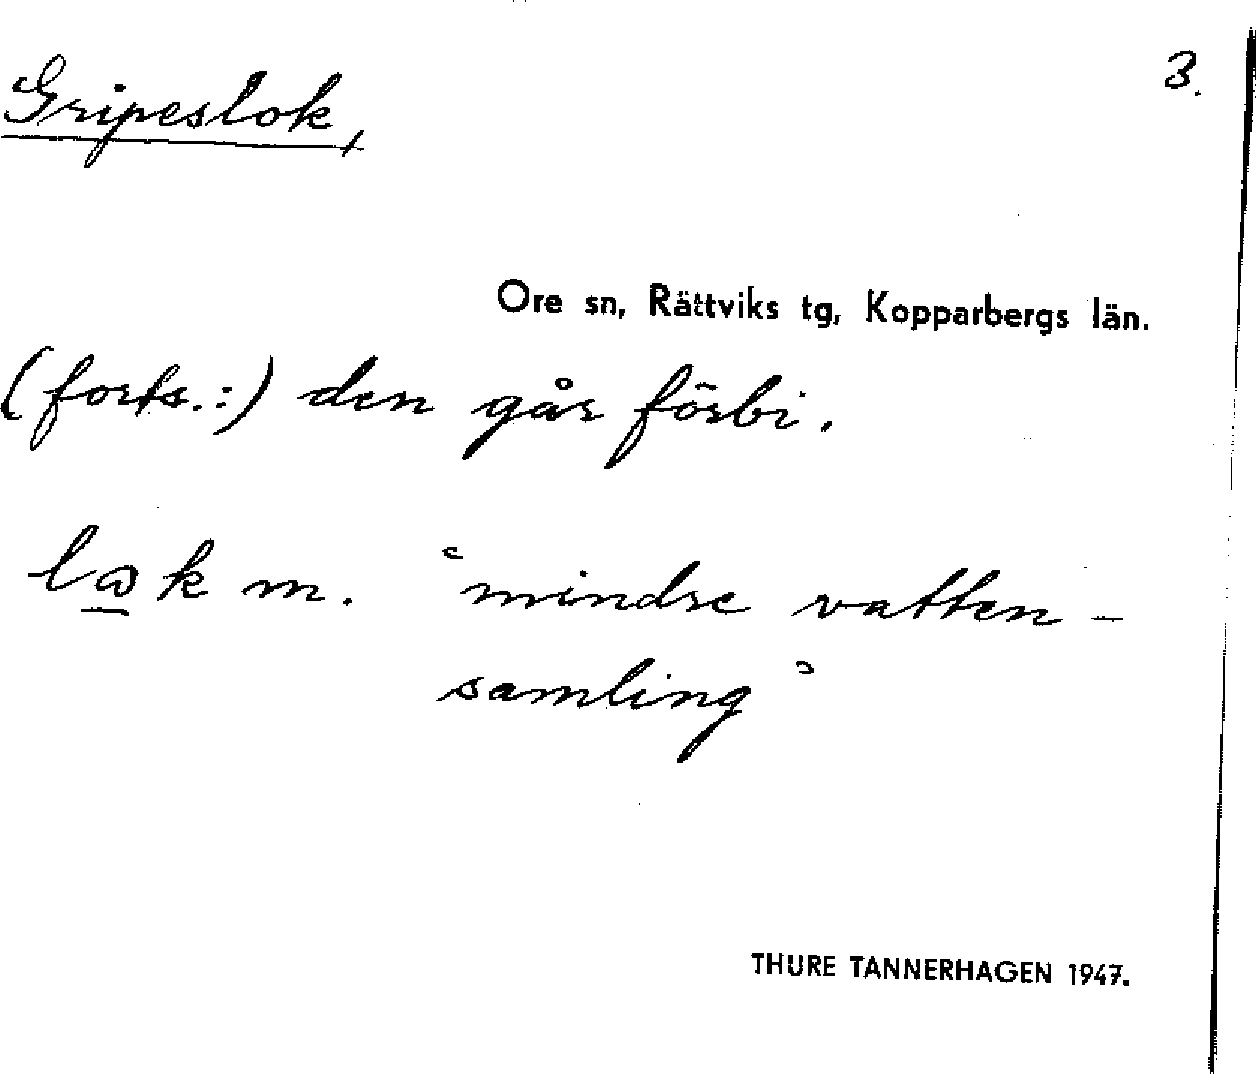 Gripeslok, 3.
Ore sn, Rättviks tg, Kopparbergs län.
(forts.:) den går förbi.
l𝑎̲k m. ʿmindre vatten-
samlingʾ
THURE TANNERHAGEN 1947.